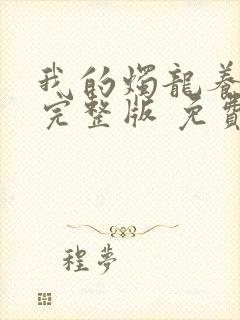 我的燭龍養
完整版 免費
程夢